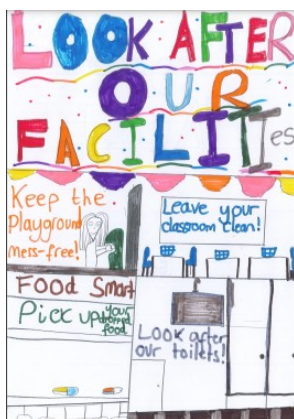 LOOK AFTER
OUR
FACILITIes
Keep the
Playground
mess-free!
Leave your
classroom clean!
Food Smart
Pick up your
dropped
food
LOOK after
our toilets!